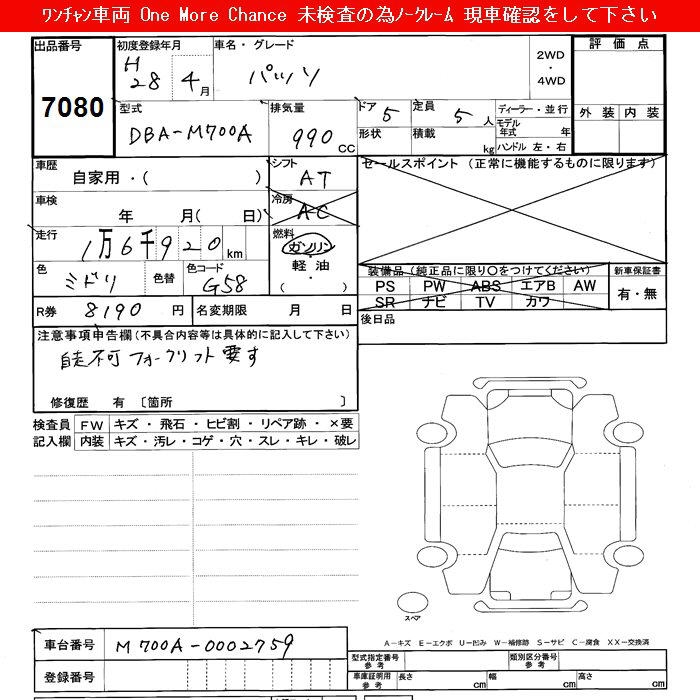 ﾜﾝﾁｬﾝ車両 One More Chance 未検査の為ﾉｰｸﾚｰﾑ 現車確認をして下さい
出品番号
7080
初度登録年月
H28 4月
車名・グレード
パッソ
2WD
・
4WD
評価点
外装 内装
型式
DBA-M700A
排気量
990 CC
ドア 5
定員 5 人
形状
積載 kg
ディーラー・並行
モデル年式 年
ハンドル 左・右
車歴
自家用・( )
シフト
AT
車検
年 月( 日)
冷房
AC
走行
1万6千920 km
燃料
ガソリン
・
軽油
・
( )
色
ミドリ
色替
色コード
G58
R券 8190 円
名変期限 月 日
セールスポイント (正常に機能するものに限ります)
装備品(純正品に限り○をつけてください)
PS PW ABS エアB AW
SR ナビ TV カワ
新車保証書
有・無
後日品
注意事項申告欄(不具合内容等は具体的に記入して下さい)
自走不可 フォークリフト要す
修復歴 有 〔箇所 〕
検査員記入欄
FW キズ・飛石・ヒビ割・リペア跡・×要
内装 キズ・汚レ・コゲ・穴・スレ・キレ・破レ
スペア
A－キズ E－エクボ U－凹み W－補修跡 S－サビ C－腐食 XX－交換済
車台番号
M700A-0002759
登録番号
型式指定番号 参考
類別区分番号 参考
車庫証明用 参考
長さ cm 幅 cm 高さ cm